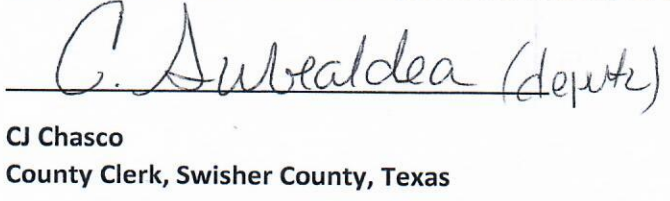 C. (deputy)
CJ Chasco
County Clerk, Swisher County, Texas